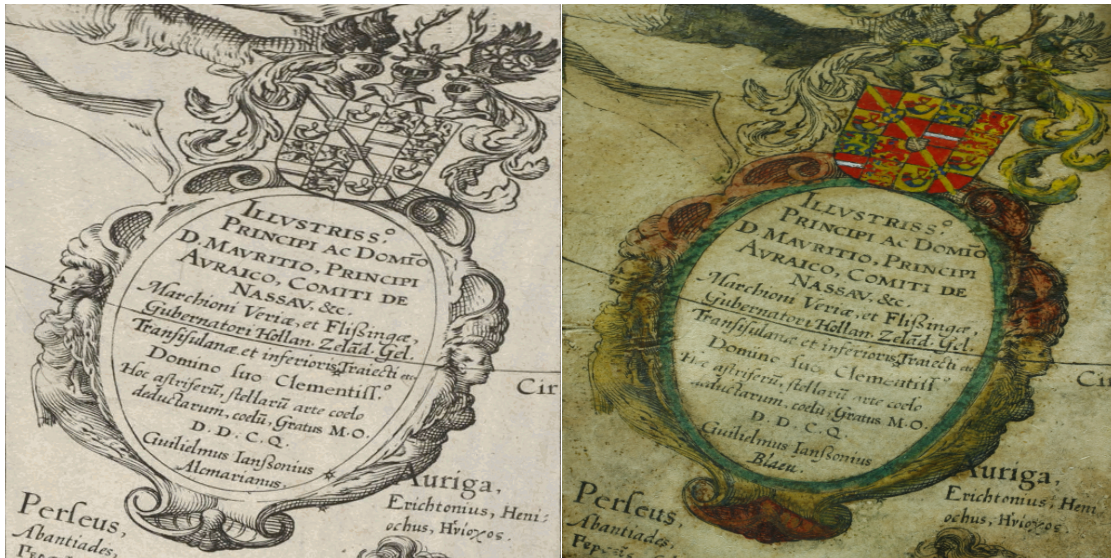 ILLVSTRISS.º
PRINCIPI AC DOMIÑO
D. MAVRITIO, PRINCIPI
AVRAICO, COMITI DE
NASSAV, &c.
Marchioni Veriæ, et Flißingæ,
Gubernatori Hollan. Zelãd. Gel.
Transisulanæ et inferioris Traiecti etc
Domino suo Clementiss.º
Hoc astriferũ, stellarũ arte coelo
deductarum, coelũ, Gratus M.O.
D. D. C. Q.
Guilielmus Ianssonius
Alcmarianus.
Cir
Auriga,
Erichtonius, Heni-
ochus, Ηνίοχος.
Perseus,
Abantiades,
ILLVSTRISS.º
PRINCIPI AC DOMIÑO
D. MAVRITIO, PRINCIPI
AVRAICO, COMITI DE
NASSAV, &c.
Marchioni Veriæ, et Flißingæ,
Gubernatori Hollan. Zelãd. Gel.
Transisulanæ et inferioris Traiecti etc
Domino suo Clementiss.º
Hoc astriferũ, stellarũ arte coelo
deductarum, coelũ, Gratus M.O.
D. D. C. Q.
Guilielmus Ianssonius
Blaeu.
Ci
Auriga,
Erichtonius, Heni-
ochus, Ηνίοχος.
Perseus,
Abantiades,